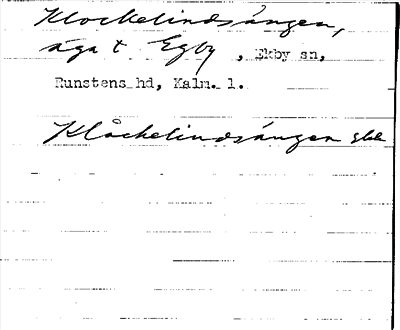 Klockelindsängen,
äga t Egby, Ekby sn,
Runstens hd, Kalm. l.
Klåckelindsängen